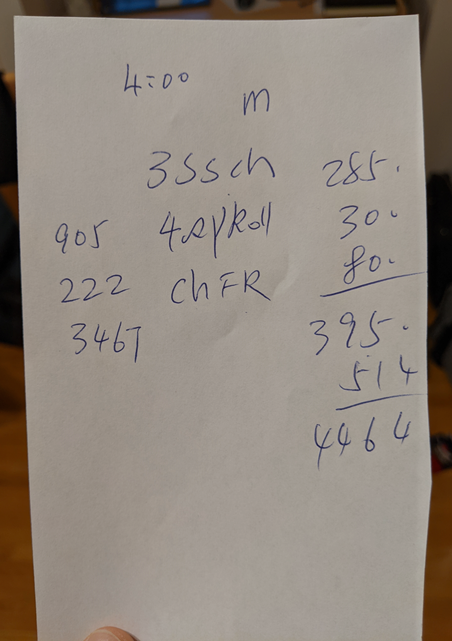 4:00
m
3 SSch 285.
905 4 spRoll 30.
80.
222 chFR
3467 395.
514
4464